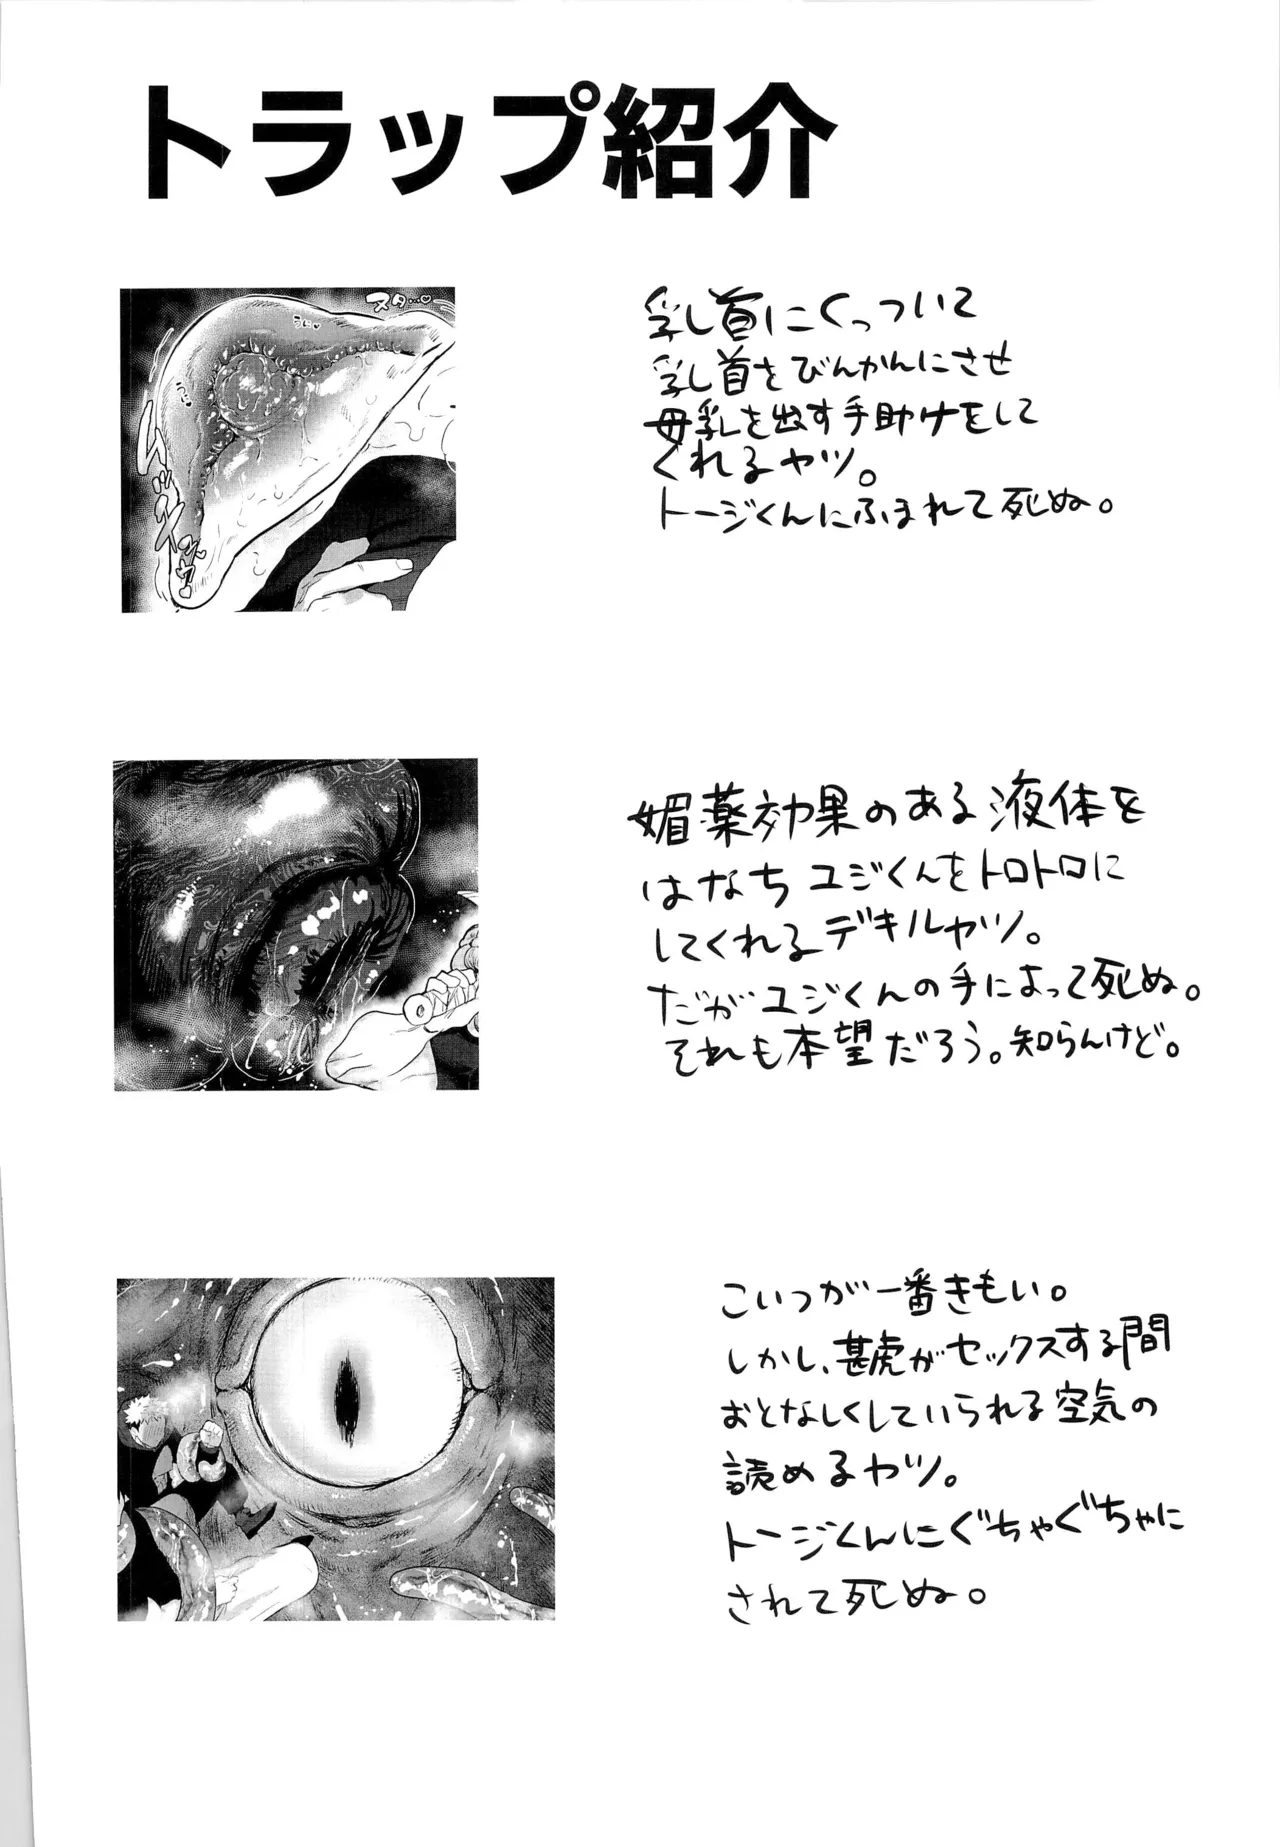 トラップ紹介
ヌタ…♡
乳し首にくっついて
乳し首をびんかんにさせ
母乳を出す手助けをして
くれるヤツ。
トージくんにふまれて死ぬ。
媚薬効果のある液体を
はなちユジくんをトロトロに
してくれるデキルヤツ。
だがユジくんの手によって死ぬ。
それも本望だろう。知らんけど。
こいつが一番きもい。
しかし、甚虎がセックスする間
おとなしくしていられる空気の
読めるヤツ。
トージくんにぐちゃぐちゃに
されて死ぬ。